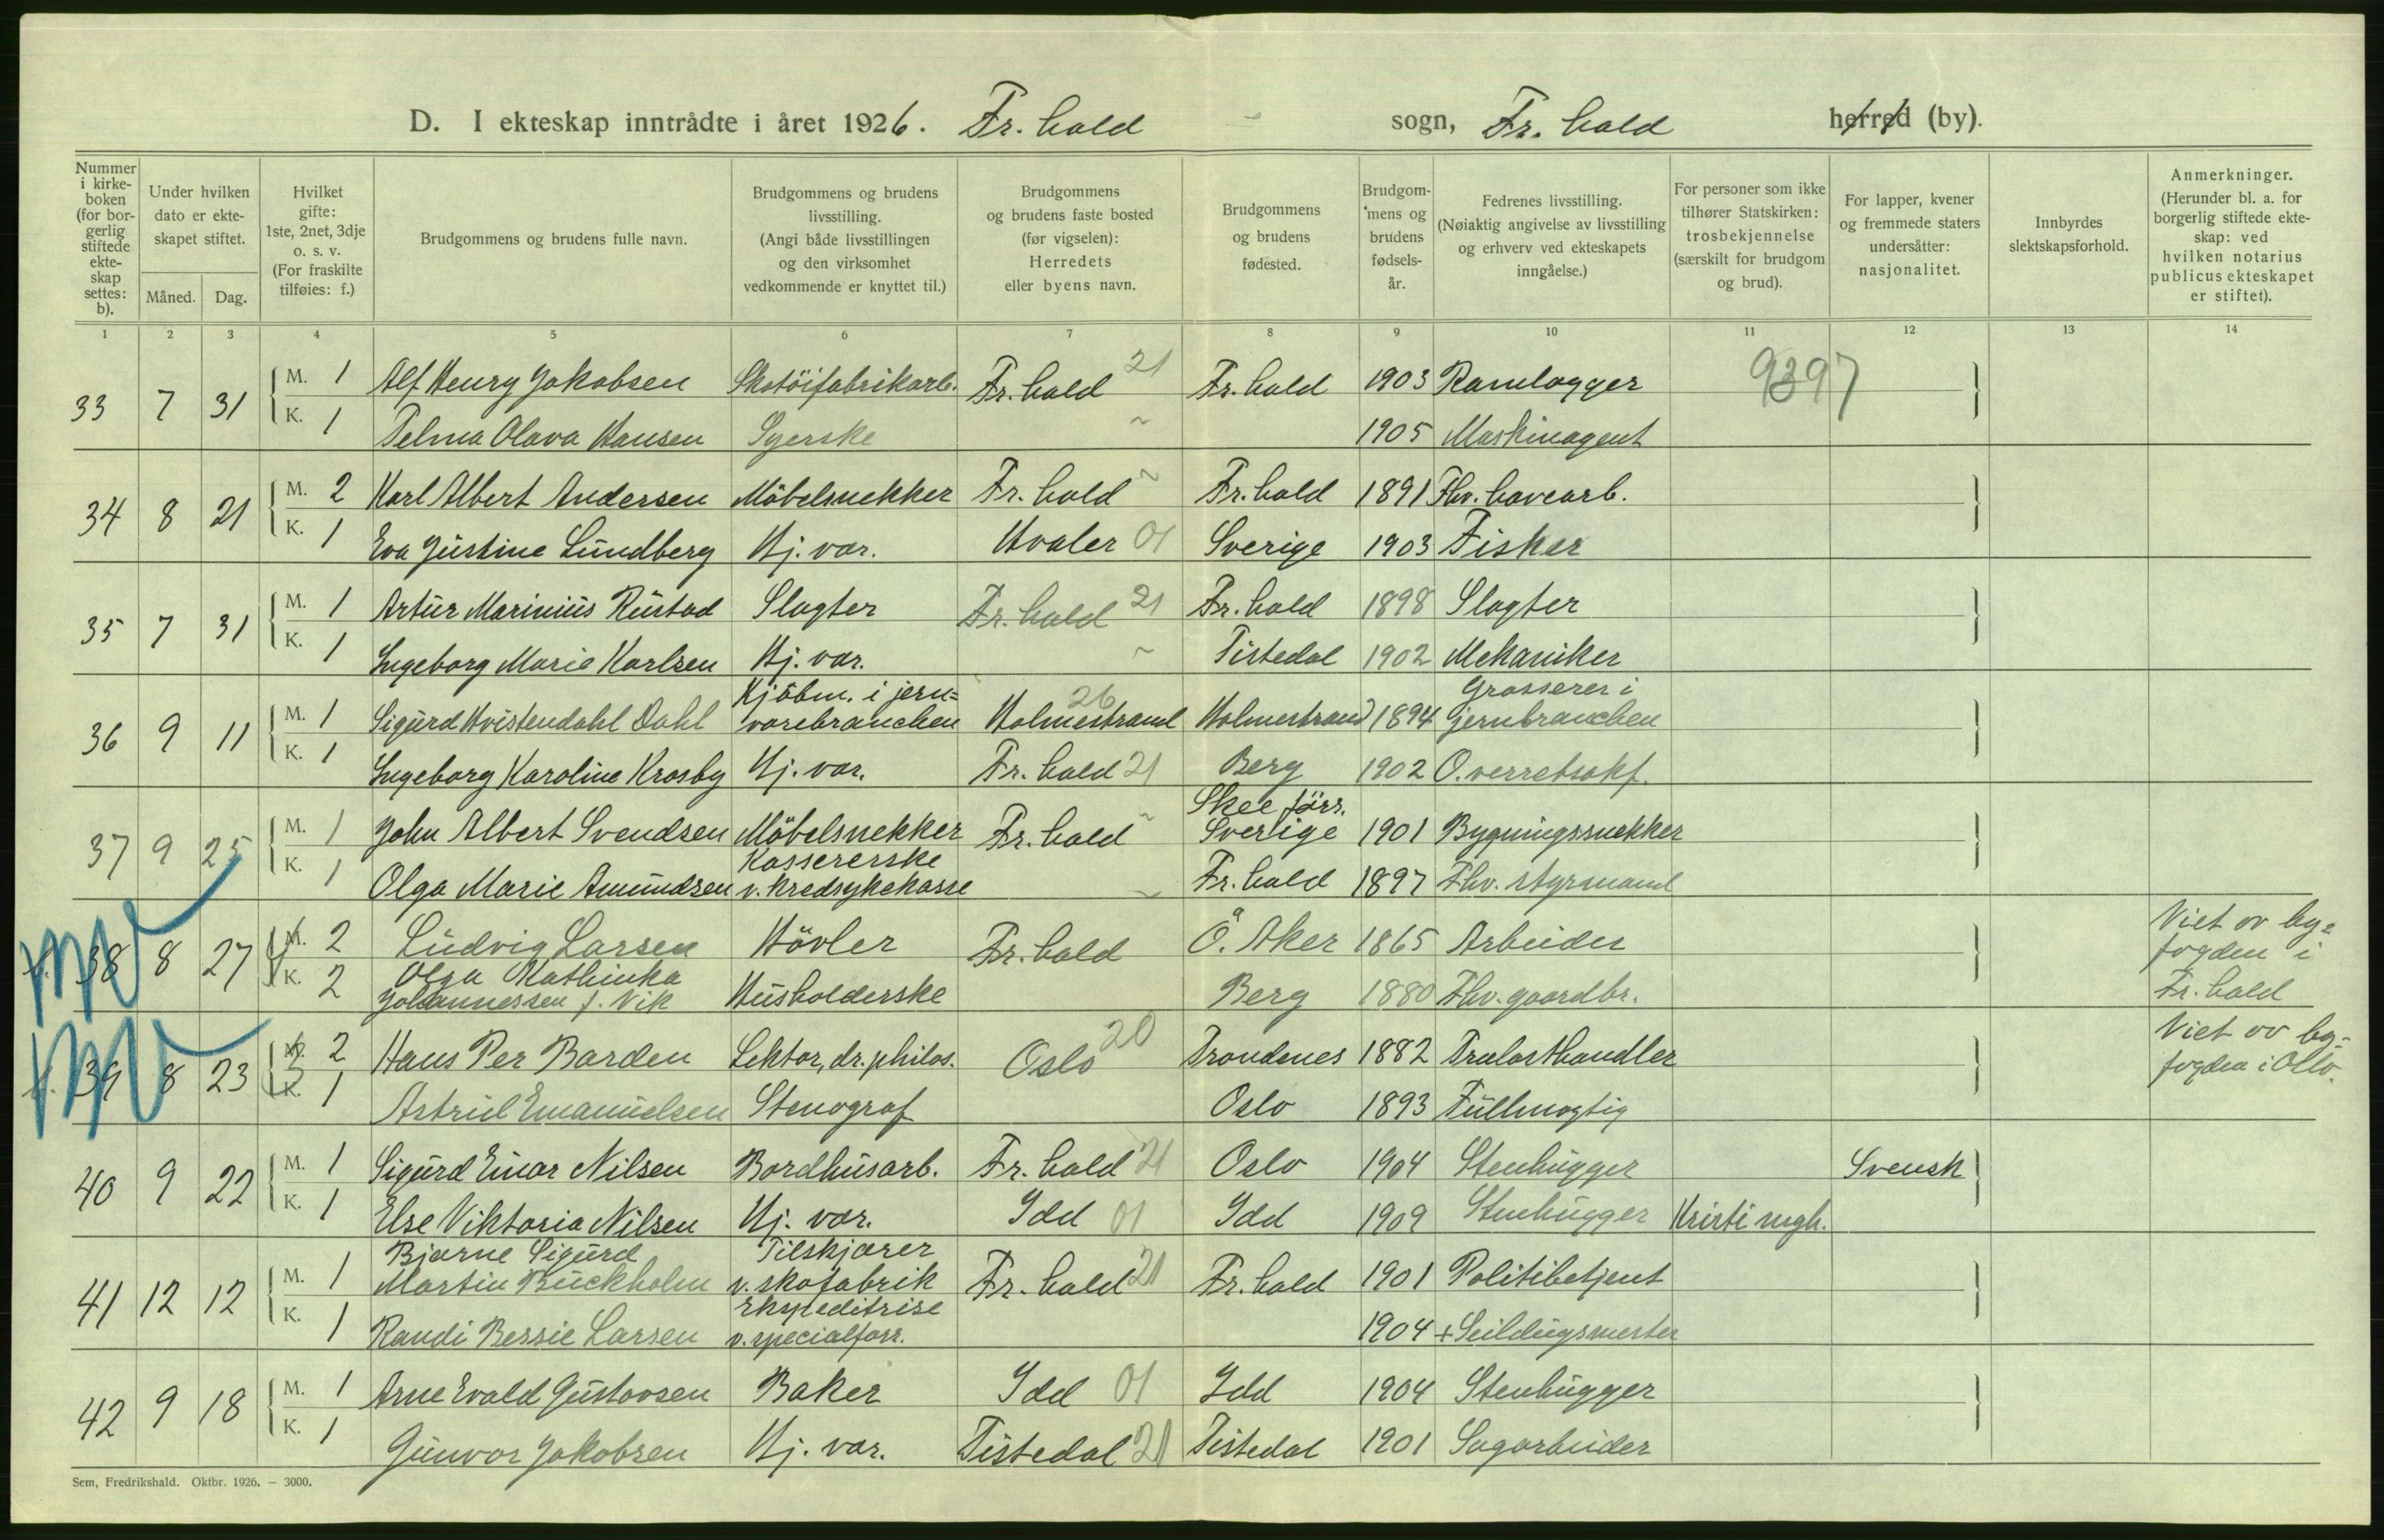 D. I ekteskap inntrådte i året 1926. Fr.hald sogn, Fr.hald herred (by).
Nummer i kirke-boken (for bor-gerlig stiftede ekte-skap settes: b).
Under hvilken dato er ekte-skapet stiftet.
Måned. Dag.
Hvilket gifte: 1ste, 2net, 3dje o. s. v. (For fraskilte tilføies: f.)
Brudgommens og brudens fulle navn.
Brudgommens og brudens livsstilling. (Angi både livsstillingen og den virksomhet vedkommende er knyttet til.)
Brudgommens og brudens faste bosted (før vigselen): Herredets eller byens navn.
Brudgommens og brudens fødested.
Brudgom-mens og brudens fødsels-år.
Fedrenes livsstilling. (Nøiaktig angivelse av livsstilling og erhverv ved ekteskapets inngåelse.)
For personer som ikke tilhører Statskirken: trosbekjennelse (særskilt for brudgom og brud).
For lapper, kvener og fremmede staters undersåtter: nasjonalitet.
Innbyrdes slektskapsforhold.
Anmerkninger. (Herunder bl. a. for borgerlig stiftede ekte-skap: ved hvilken notarius publicus ekteskapet er stiftet).
1 2 3 4 5 6 7 8 9 10 11 12 13 14
33 7 31 M. 1 Alf Henry Jakobsen Skotöifabrikarb. Fr.hald 21 Fr.hald 1903 Ramlagger 9397
K. 1 Telma Olava Hansen Syerske ~ 1905 Maskinagent
34 8 21 M. 2 Karl Albert Andersen Möbelsnekker Fr.hald ~ Fr.hald 1891 Fhv. havearb.
K. 1 Eva Justine Lundberg Hj. vær. Hvaler 01 Sverige 1903 Fisker
35 7 31 M. 1 Artur Marinius Rustad Slagter Fr.hald 21 Fr.hald 1898 Slagter
K. 1 Ingeborg Marie Karlsen Hj. vær. ~ Tistedal 1902 Mekaniker
36 9 11 M. 1 Sigurd Hvistendahl Dahl Kjöbm. i jern=varebranchen Holmestrand 26 Holmestrand 1894 Grosserer i jernbranchen
K. 1 Ingeborg Karoline Krosby Hj. vær. Fr.hald 21 Berg 1902 O.verretsakf.
37 9 25 M. 1 John Albert Svendsen Möbelsnekker Fr.hald ~ Skee förs. Sverige 1901 Bygningssnekker
K. 1 Olga Marie Amundsen Kassererske v. kredsykekasse ~ Fr.hald 1897 Fhv. styrmand
38 8 27 M. 2 Ludvig Larsen Hövler Fr.hald Ö. Aker 1865 Arbeider Viet av by=fogden i Fr.hald
K. 2 Olga Mathinka Johannessen f. Vik Husholderske Berg 1880 Fhv. gaardbr.
39 8 23 M. 2 Hans Per Barden Lektor, dr. philos. Oslo 20 Trondenes 1882 Trælasthandler Viet av by-fogden i Oslo.
K. 1 Astrid Emanuelsen Stenograf Oslo 1893 Fullmægtig
40 9 22 M. 1 Sigurd Einar Nilsen Bordhusarb. Fr.hald 21 Oslo 1904 Stenhugger Svensk
K. 1 Else Viktoria Nilsen Hj. vær. Idd 01 Idd 1909 Stenhugger Kristi mgh.
41 12 12 M. 1 Bjarne Sigurd Martin Buckholm Tilskjærer v. skofabrik Fr.hald 21 Fr.hald 1901 Politibetjent
K. 1 Randi Bessie Larsen Ekspeditrise v. specialforr. 1904 + Seildugsmester
42 9 18 M. 1 Arne Evald Gustavsen Baker Idd 01 Idd 1904 Stenhugger
K. 1 Gunvor Jakobsen Hj. vær. Tistedal 21 Tistedal 1901 Sagarbeider
Sem, Fredrikshald. Oktbr. 1926. – 3000.